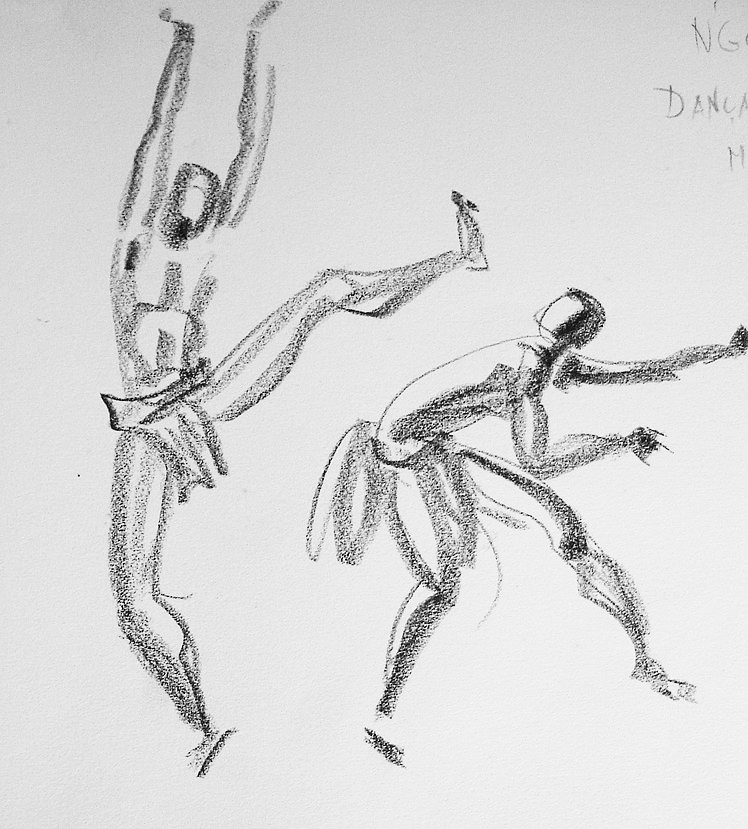 NGO
DANÇA
M